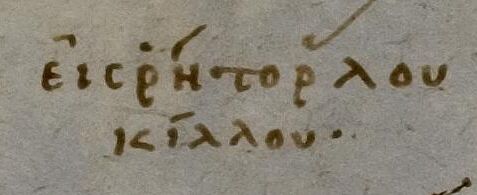 εἰς ῥήτορ λου
κίλλου·